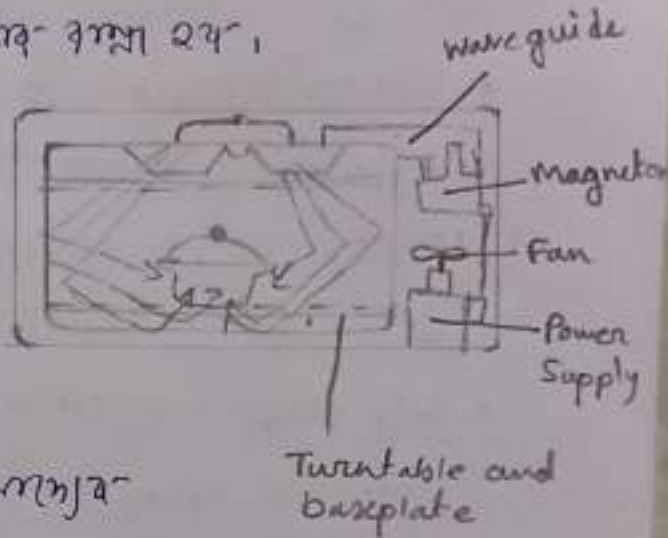 করা হয়।
waveguide
Magneton
Fan
Power
Supply
Turntable and
baseplate